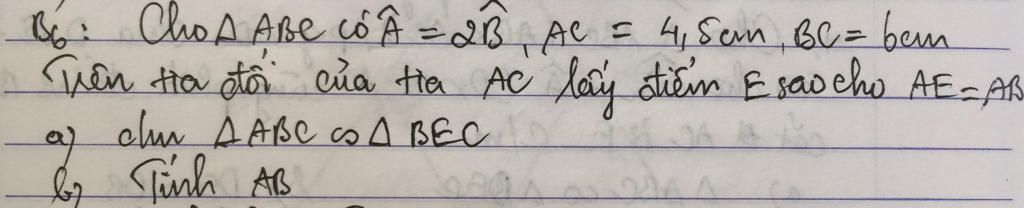 B6: Cho Δ ABC có Â = 2B̂, AC = 4,5cm, BC = 6cm
Trên tia đối của tia AC lấy điểm E sao cho AE = AB
a) cm Δ ABC ∽ Δ BEC
b) Tính AB